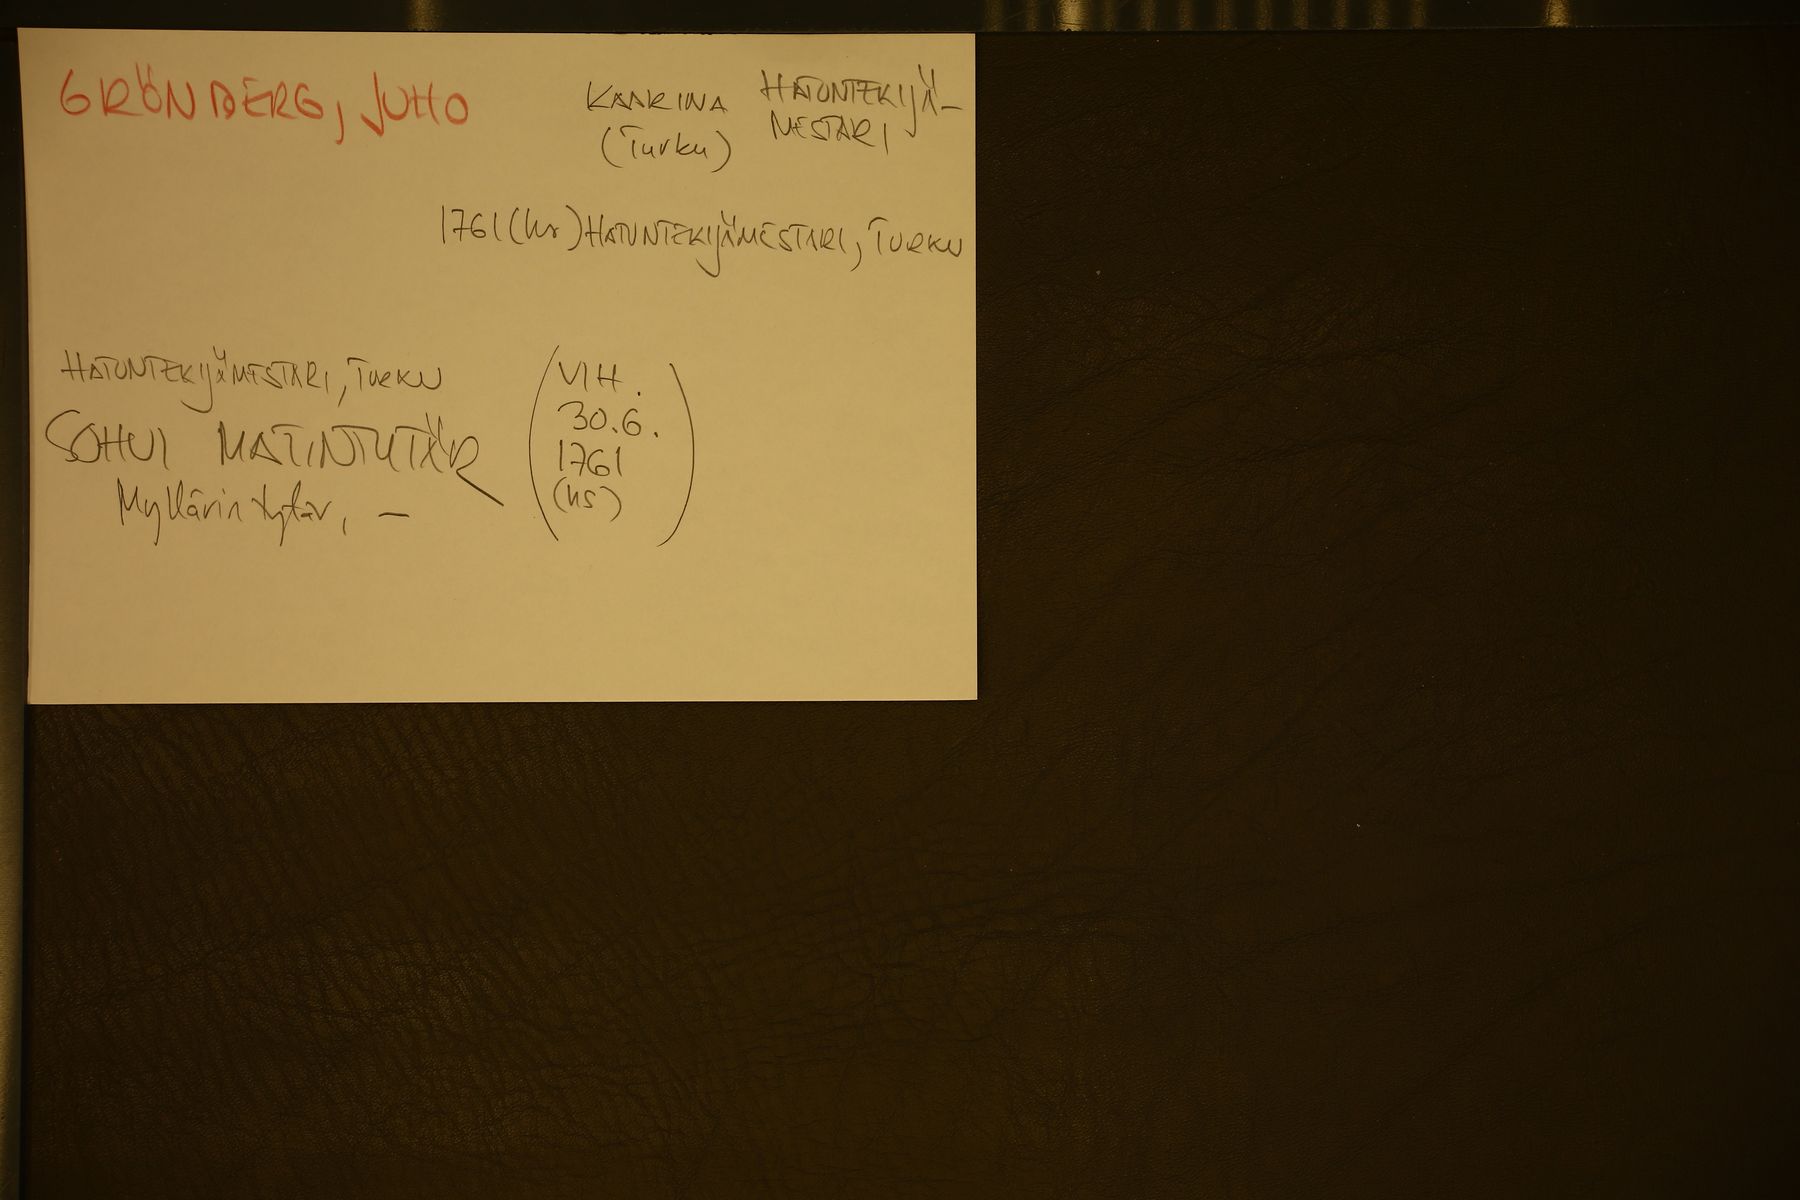 GRÖNBERG, JUHO
KAARINA
(Turku)
HATUNTEKIJÄ-
MESTARI
1761 (ks) HATUNTEKIJÄMESTARI, TURKU
HATUNTEKIJÄMESTARI, TURKU
SOHVI MATINTYTÄR
Myllärin tytär, —
(VIH.
30.6.
1761
(ks))